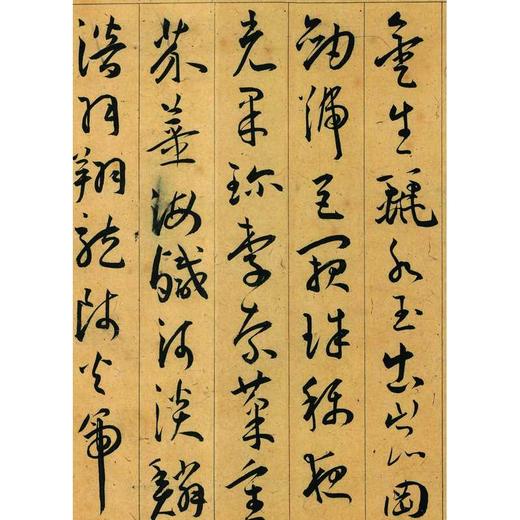 金生麗水玉出崑岡
劍號巨闕珠稱夜
光果珍李柰菜重
芥薑海鹹河淡鱗
潛羽翔龍師火帝